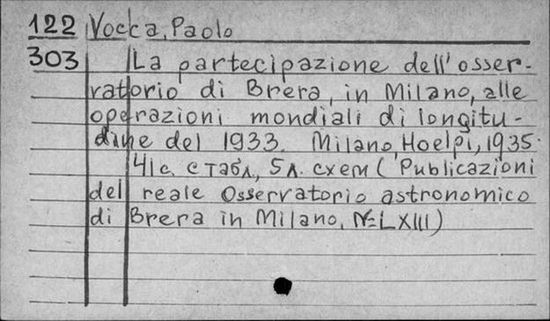 122 Vocca, Paolo
303 La partecipazione dell'osser-
vatorio di Brera, in Milano, alle
operazioni mondiali di longitu-
dine del 1933. Milano, Hoelpi, 1935.
41 с. с табл., 5 л. схем (Publicazioni
del reale Osservatorio astronomico
di Brera in Milano, №LXIII)